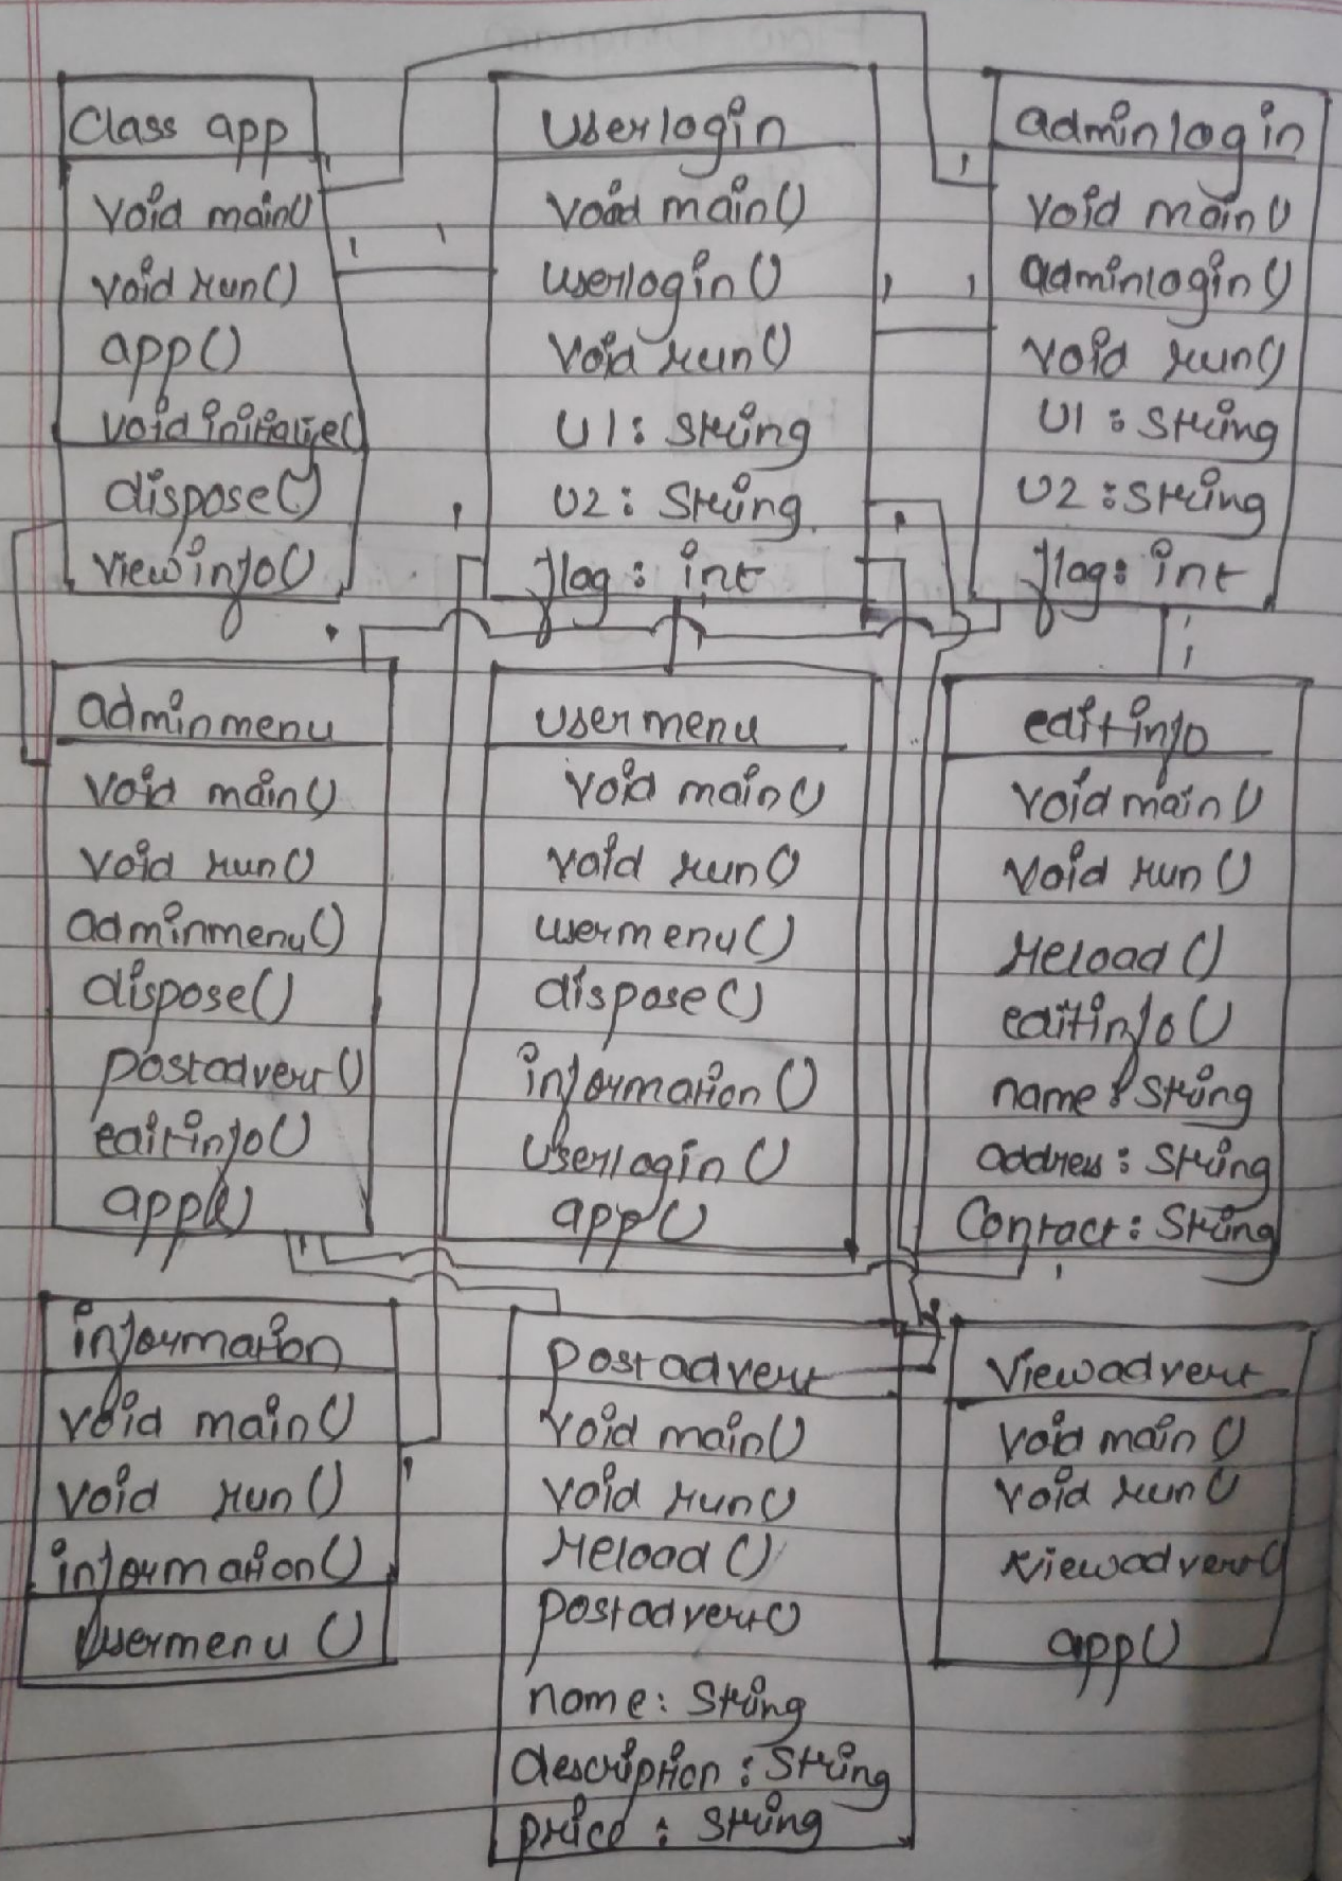 Class app
void main()
void run()
app()
void initialize()
dispose()
viewinfo()
Userlogin
void main()
userlogin()
void run()
U1: String
U2: String
flag: int
adminlogin
void main()
adminlogin()
void run()
U1: String
U2: String
flag: int
adminmenu
void main()
void run()
adminmenu()
dispose()
postadvert()
editinfo()
app()
usermenu
void main()
void run()
usermenu()
dispose()
information()
Userlogin()
app()
editinfo
void main()
void run()
reload()
editinfo()
name: String
address: String
Contact: String
information
void main()
void run()
information()
Usermenu()
postadvert
void main()
void run()
reload()
postadvert()
name: String
description: String
price: String
Viewadvert
void main()
void run()
viewadvert()
app()